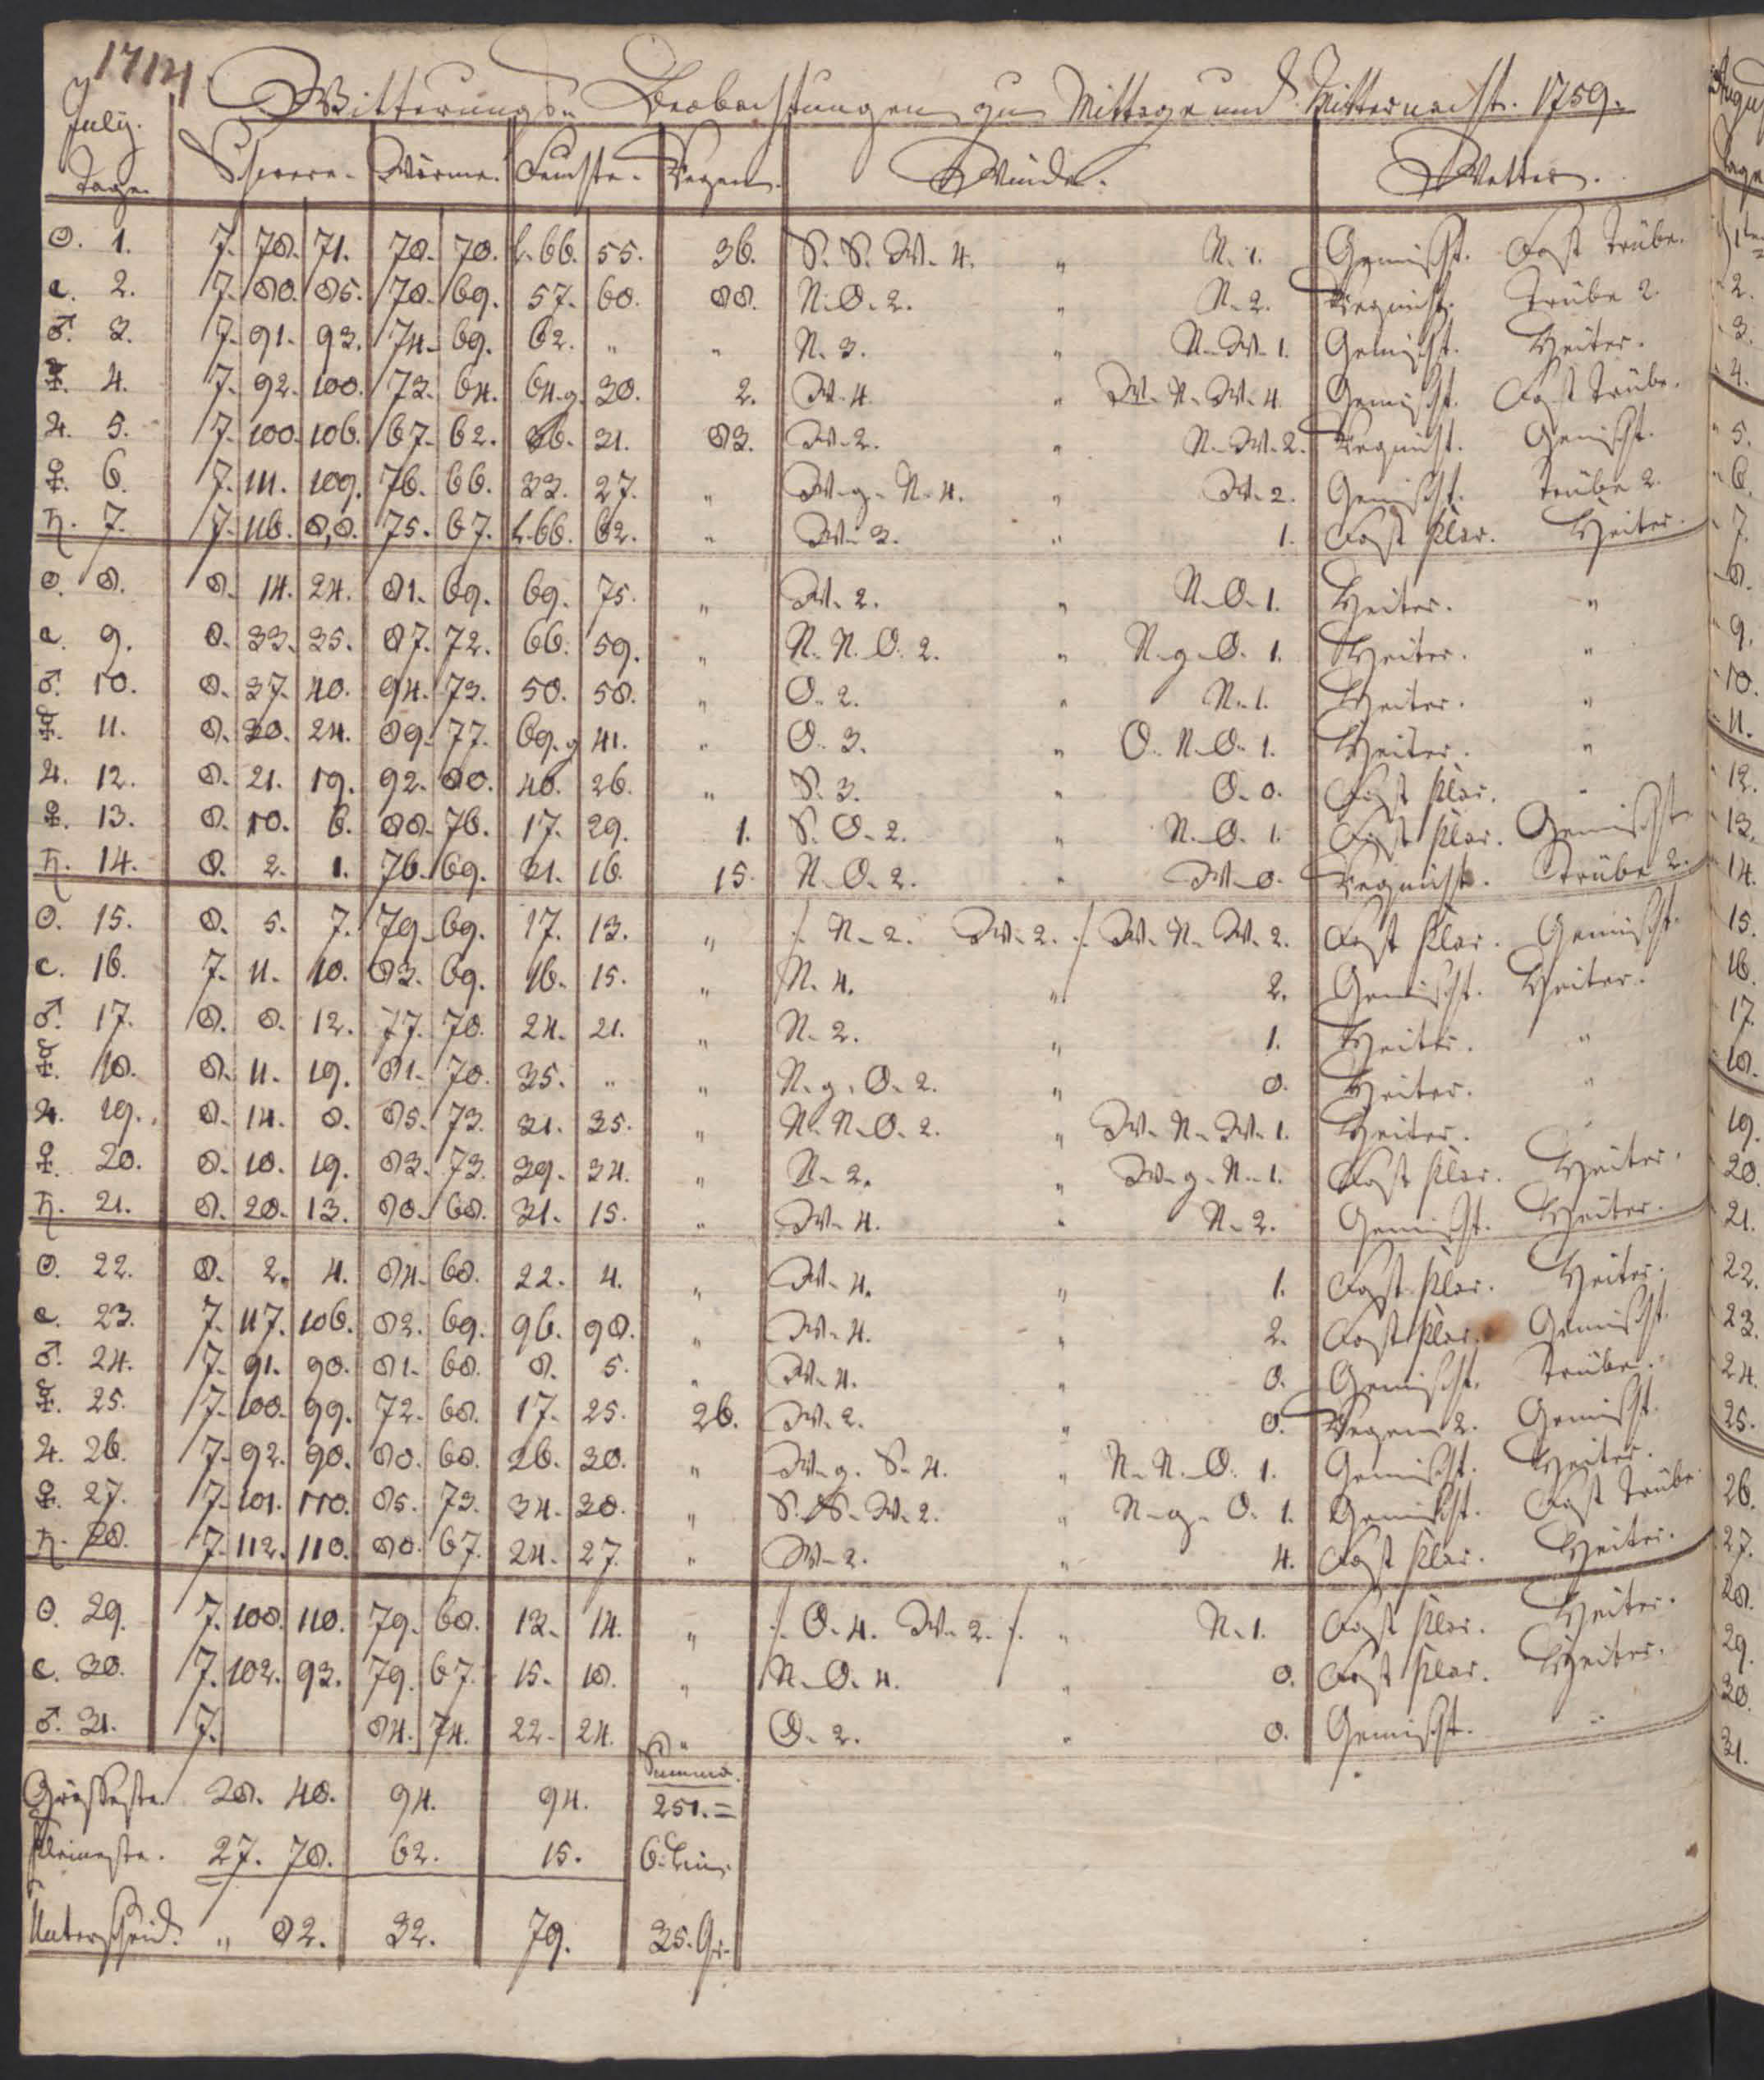 1714
Witterungs- Beobachtungen zu Mittage und Mitternacht. 1759.
July.
Tage. Schwere. Wärme. Feuchte. Regen. Winde. Wetter.
☉. 1. 7. 78. 71. 78. 70. 66. 55. 36. S. S. W. 4. " N. 1. Gemischt. Fast Trübe.
☾. 2. 7. 80. 85. 78. 69. 57. 60. 88. N. O. 2. " N. 2. Regnicht. Trübe 2.
♂. 3. 7. 91. 93. 74. 69. 62. " " N. 3. " N. W. 1. Gemischt. Heiter.
☿. 4. 7. 92. 100. 73. 64. 64. g. 30. 2. W. 4. " W. N. W. 4. Gemischt. Fast Trübe.
♃. 5. 7. 100. 106. 67. 62. 31. 83. W. 2. " N. W. 2. Regnicht. Gemischt.
♀. 6. 7. 111. 109. 76. 66. 33. 27. " W. g. N. 4. " W. 2. Gemischt. Trübe 2.
♄. 7. 7. 116. 8,8. 75. 67. 66. 62. " W. 3. " 1. Fast Klar. Heiter.
☉. 8. 8. 14. 24. 81. 69. 69. 75. " W. 2. " N. O. 1. Heiter. "
☾. 9. 8. 33. 35. 87. 72. 66. 59. " N. N. O. 2. " N. g. O. 1. Heiter. "
♂. 10. 8. 37. 40. 94. 73. 50. 58. " O. 2. " N. 1. Heiter. "
☿. 11. 8. 30. 24. 89. 77. 69. g 41. " O. 3. " O. N. O. 1. Heiter. "
♃. 12. 8. 21. 19. 92. 80. 40. 26. " S. 3. " O. 0. Fast Klar. "
♀. 13. 8. 10. 6. 88. 76. 17. 29. 1. S. O. 2. " N. O. 1. Fast Klar. Gemischt.
♄. 14. 8. 2. 1. 76. 69. 21. 16. 15. N. O. 2. " W. 0. Regnicht. Trübe 2.
☉. 15. 8. 5. 7. 79. 69. 17. 13. " N. 2. W. 2. W. N. W. 2. Fast Klar. Gemischt.
☾. 16. 7. 11. 10. 83. 69. 16. 15. " N. 4. " 2. Gemischt. Heiter.
♂. 17. 8. 8. 12. 77. 70. 24. 21. " N. 2. " 1. Heiter. "
☿. 18. 8. 11. 19. 81. 70. 35. " " N. g. O. 2. " 0. Heiter. "
♃. 19. 8. 14. 8. 85. 73. 31. 35. " N. N. O. 2. " W. N. W. 1. Heiter.
♀. 20. 8. 18. 19. 83. 73. 39. 34. " N. 2. " W. g. N. 1. Fast Klar. Heiter.
♄. 21. 8. 20. 13. 80. 68. 31. 15. " W. 4. " N. 2. Gemischt. Heiter.
☉. 22. 8. 2. 4. 84. 68. 22. 4. " W. 4. " 1. Fast Klar. Heiter.
☾. 23. 7. 117. 106. 82. 69. 96. 98. " W. 4. " 2. Fast Klar. Gemischt.
♂. 24. 7. 91. 90. 81. 68. 8. 5. " W. 4. " 0. Gemischt. Trübe.
☿. 25. 7. 100. 99. 72. 68. 17. 25. 26. W. 2. " 0. Regen 2. Gemischt.
♃. 26. 7. 92. 90. 80. 68. 26. 30. " W. g. S. 4. " N. N. O. 1. Gemischt. Heiter.
♀. 27. 7. 101. 110. 85. 73. 34. 30. " S. S. W. 2. " N. g. O. 1. Gemischt. Fast Trübe.
♄. 28. 7. 112. 110. 80. 67. 24. 27. " W. 2. " 4. Fast Klar. Heiter.
☉. 29. 7. 108. 110. 79. 68. 13. 14. " O. 4. W. 2. " N. 1. Fast Klar. Heiter.
☾. 30. 7. 102. 93. 79. 67. 15. 18. " N. O. 4. " 0. Fast Klar. Heiter.
♂. 31. 7. 84. 74. 22. 24. " O. 2. " 0. Gemischt. "
Summa.
Grösseste. 28. 40. 94. 94. 251. =
Kleineste. 27. 78. 62. 15. 6. Lin.
Unterscheid. " 82. 32. 79. 35. Gr.
Tage
2.
3.
4.
5.
6.
7.
8.
9.
10.
11.
12.
13.
14.
15.
16.
17.
18.
19.
20.
21.
22.
23.
24.
25.
26.
27.
28.
29.
30.
31.